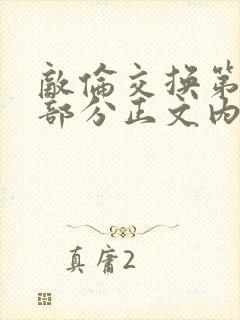 敵倫交換第
部分正文內
真庸2